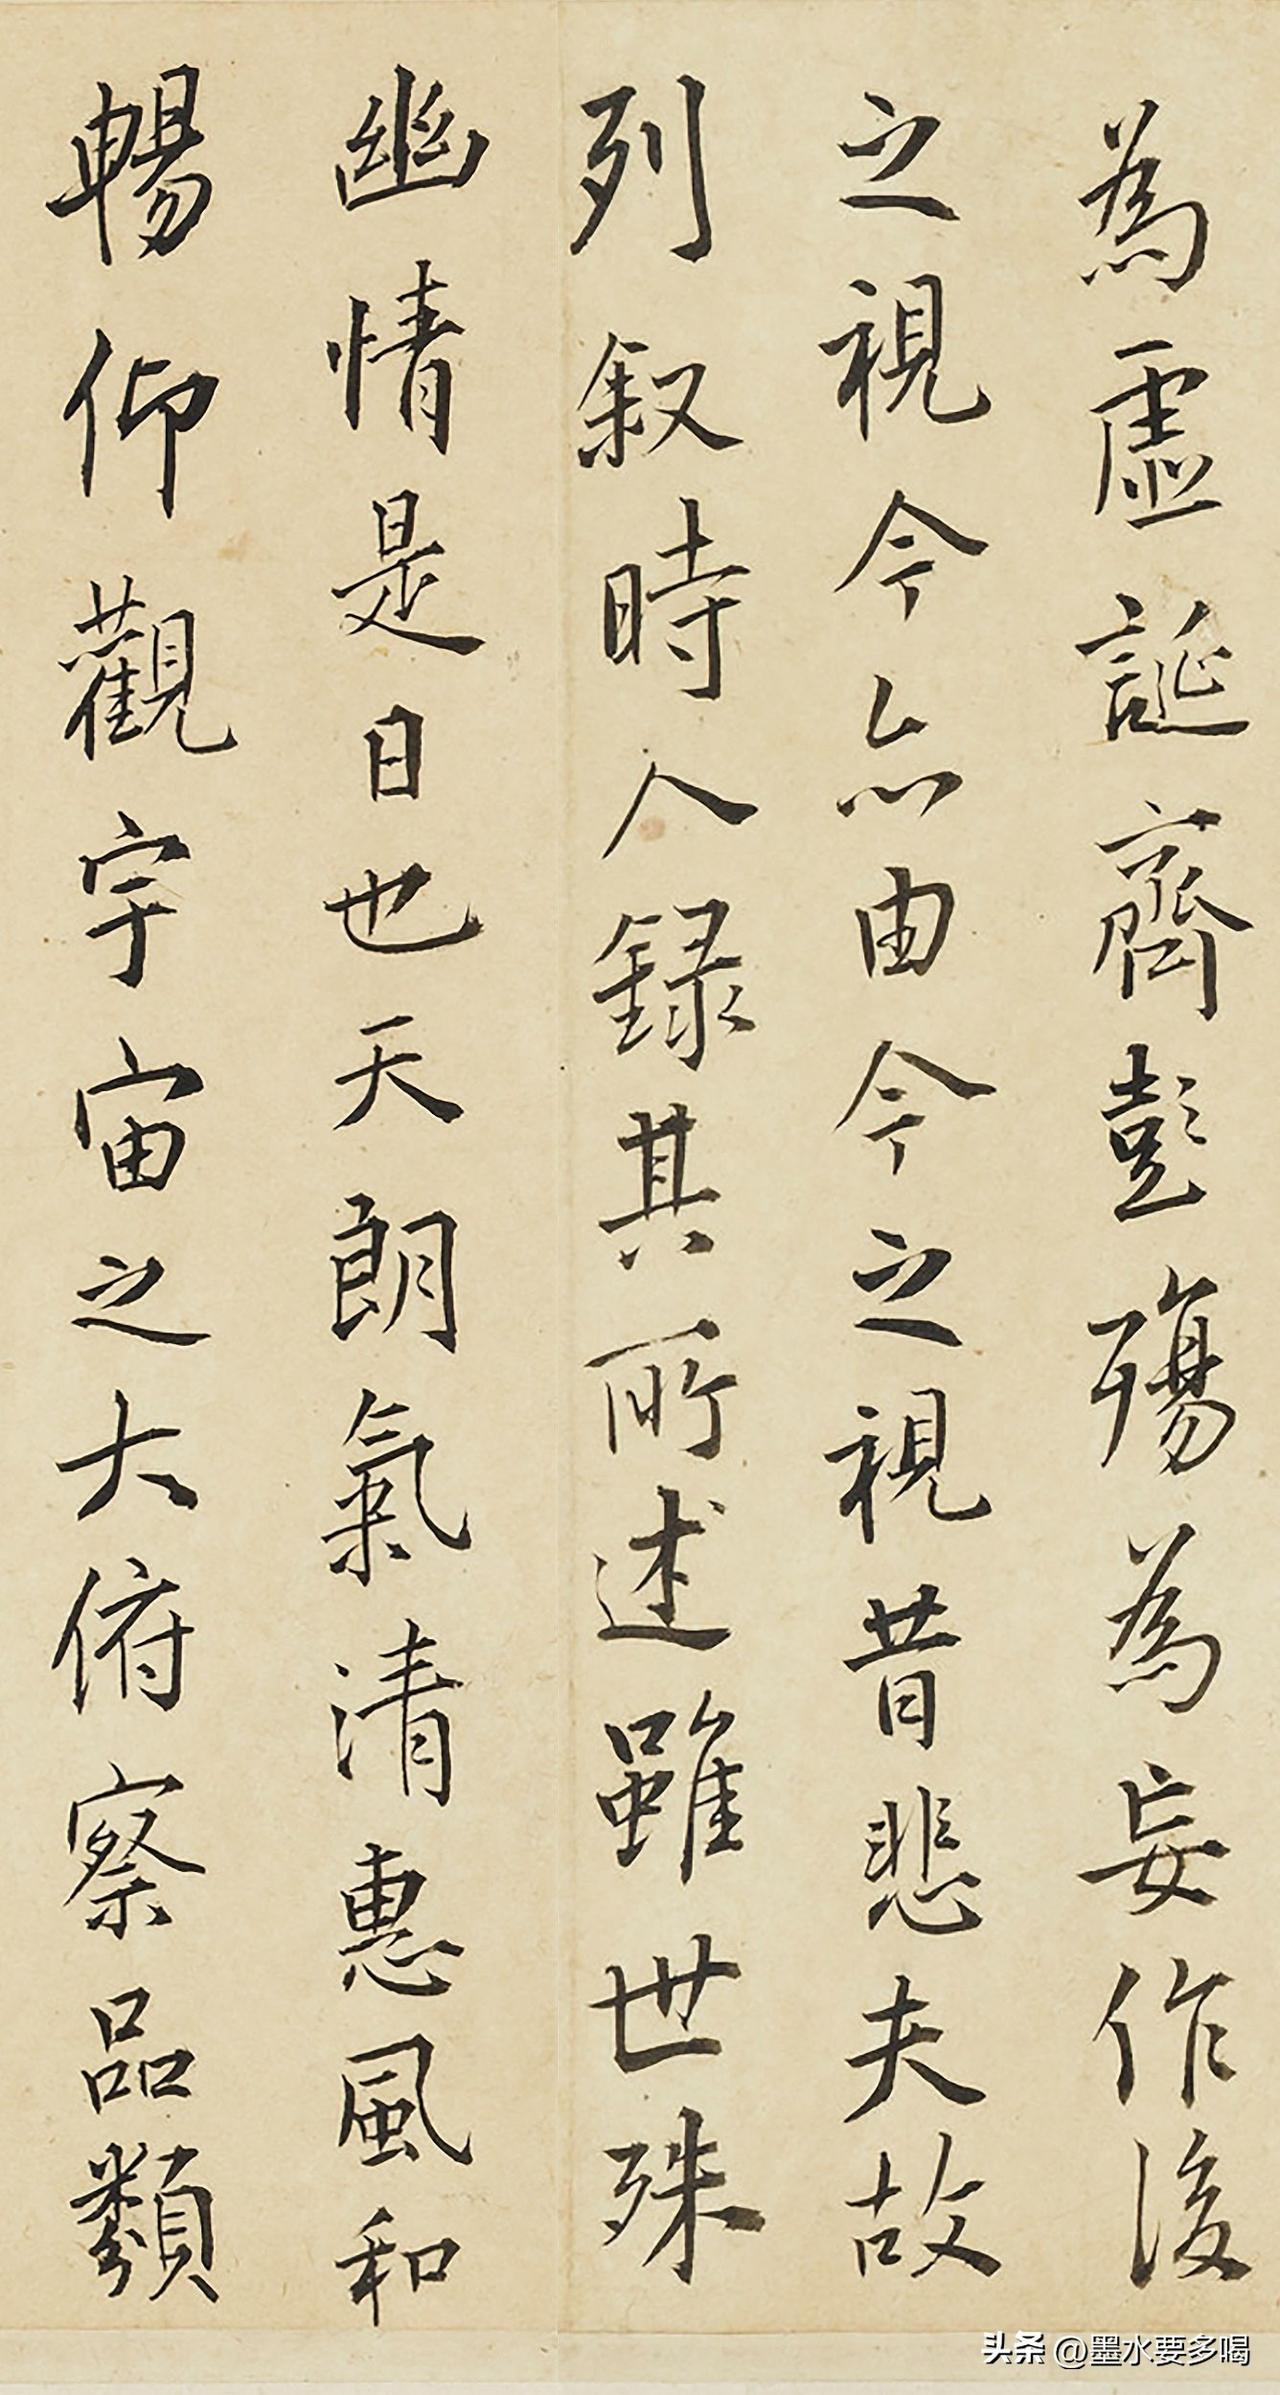 為虛誕齊彭殤為妄作後
之視今亦由今之視昔悲夫故
列叙時人録其所述雖世殊
幽情是日也天朗氣清惠風和
暢仰觀宇宙之大俯察品類
头条 @墨水要多喝